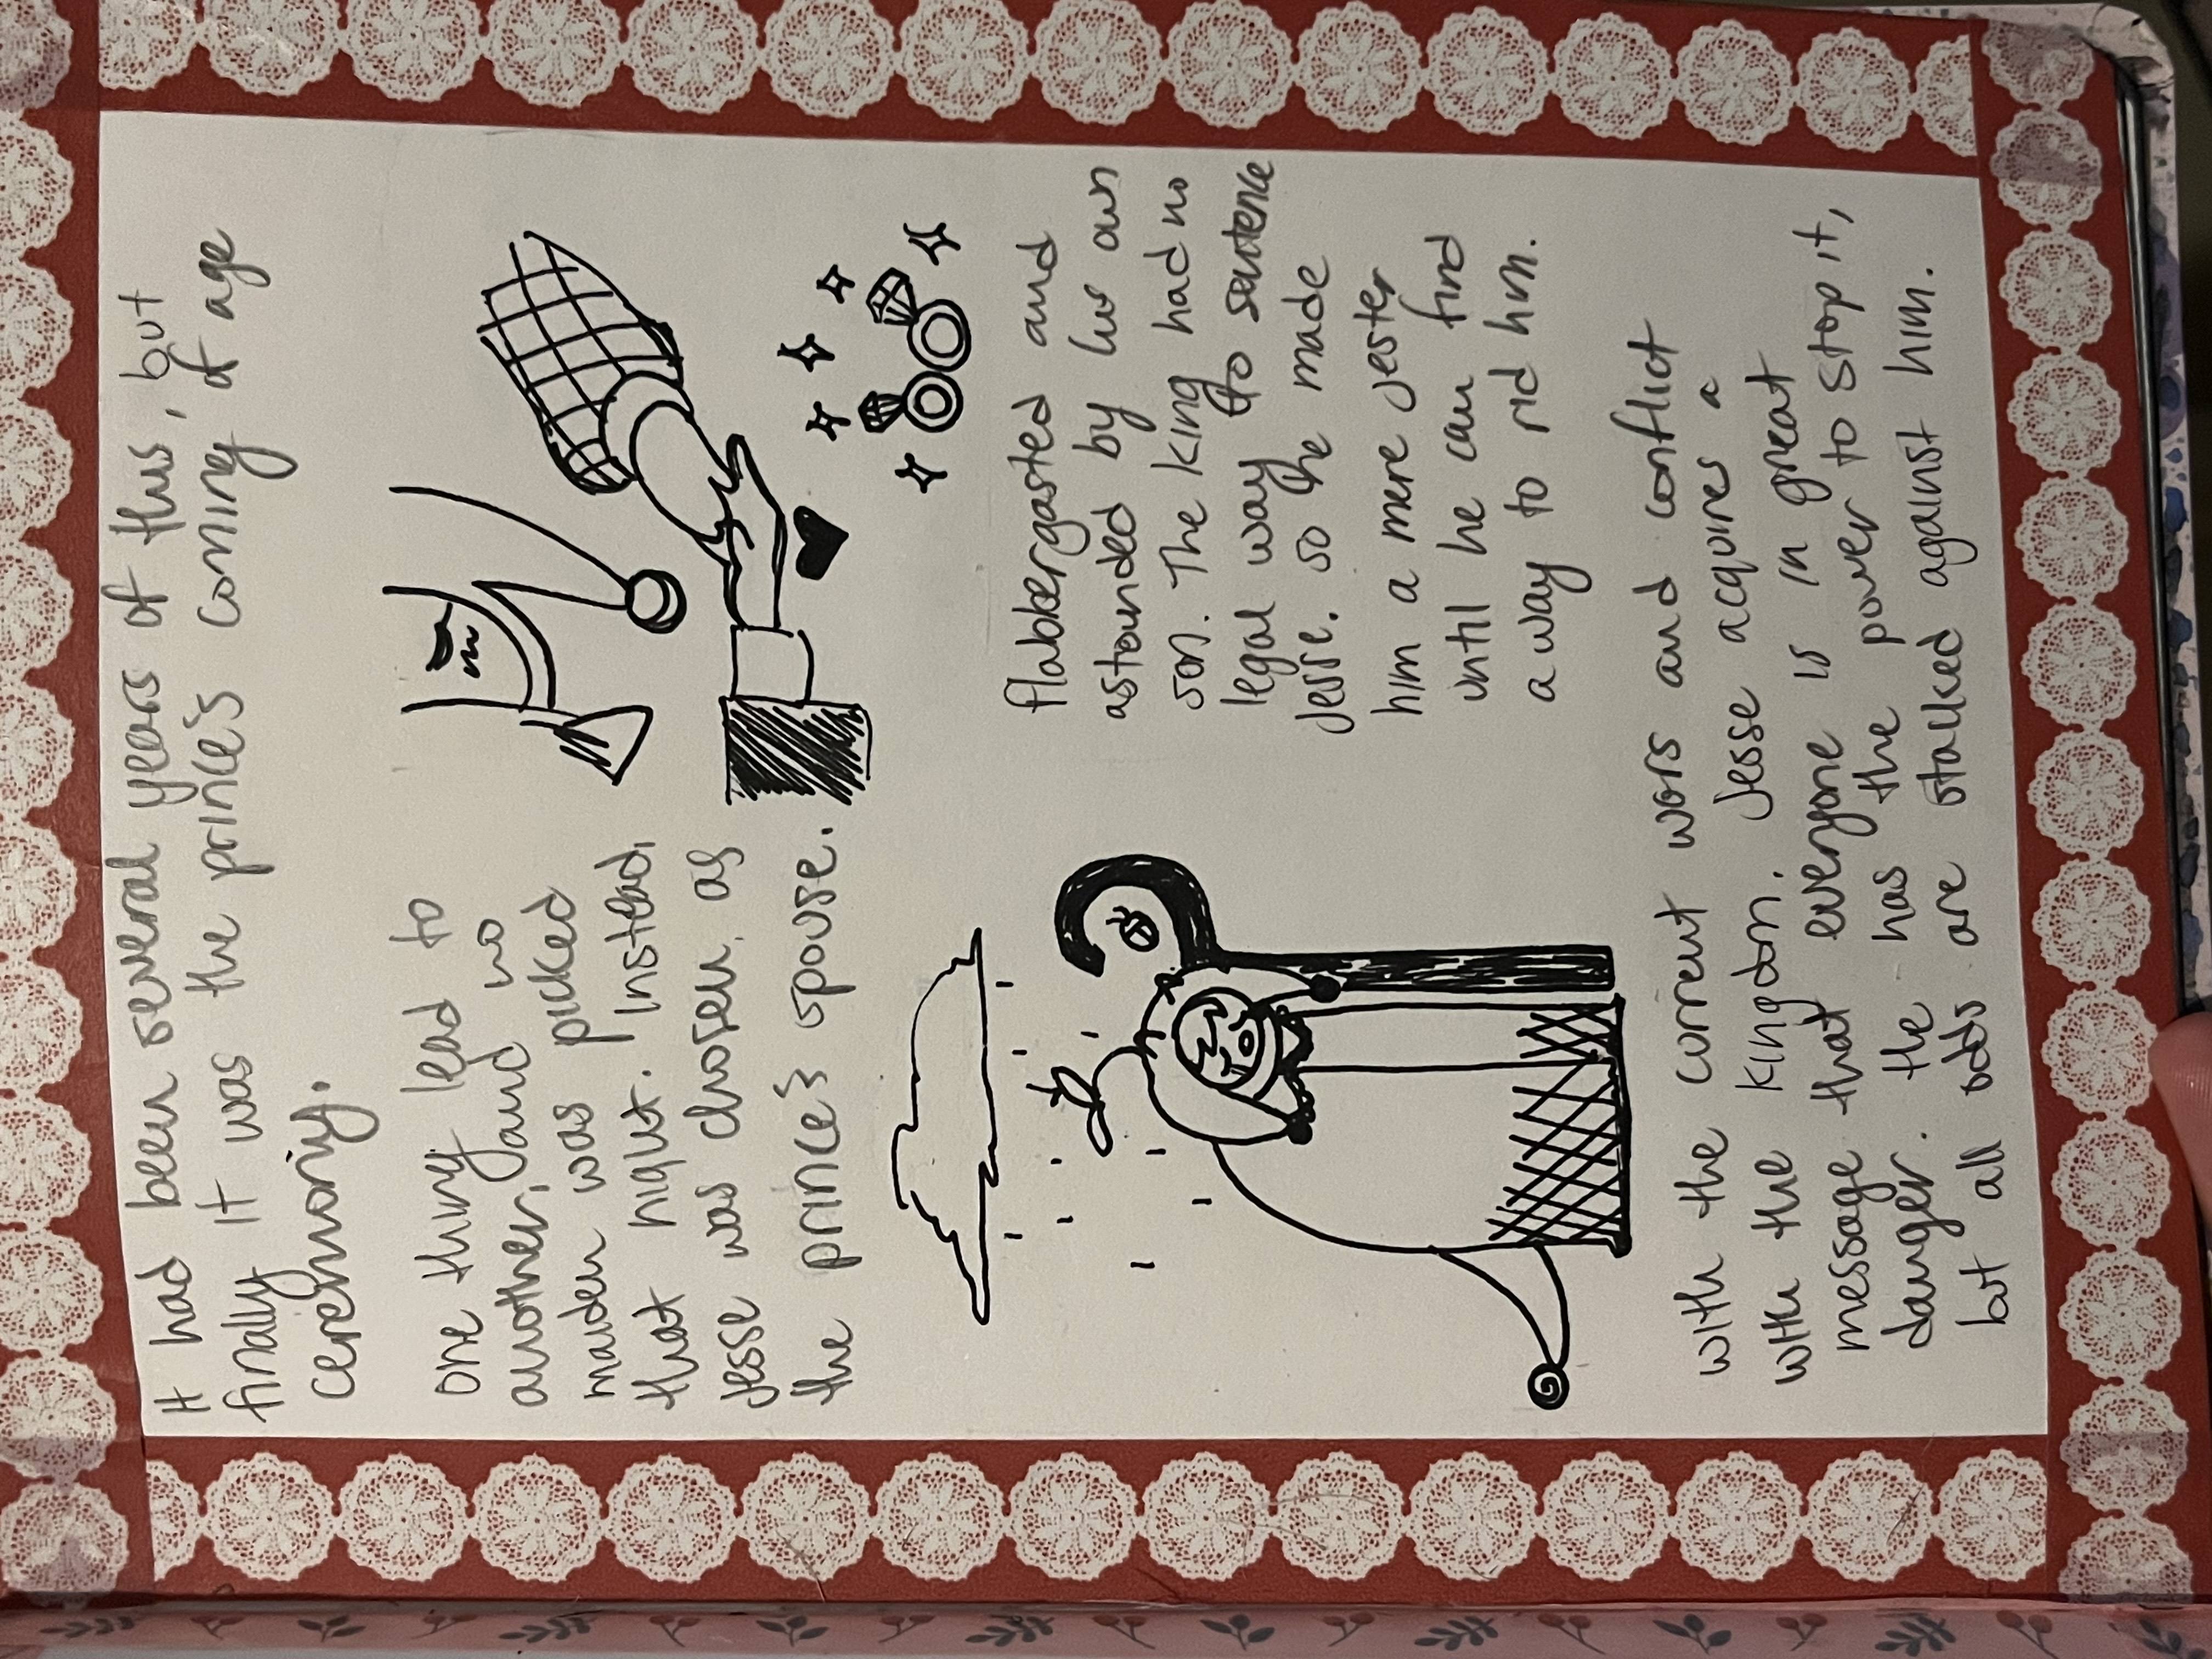 It had been several years of this, but
finally it was the prince's coming of age
ceremony.
one thing lead to
another, and no
maiden was picked
that night. Instead,
Jesse was chosen as
the prince's spouse.
flabbergasted and
astounded by his own
son. The King had no
legal way to sentence
Jesse. so he made
him a mere jester
until he can find
a way to rid him.
with the current wars and conflict
with the kingdom. Jesse acquires a
message that everyone is in great
danger. He has the power to stop it,
but all odds are stacked against him.